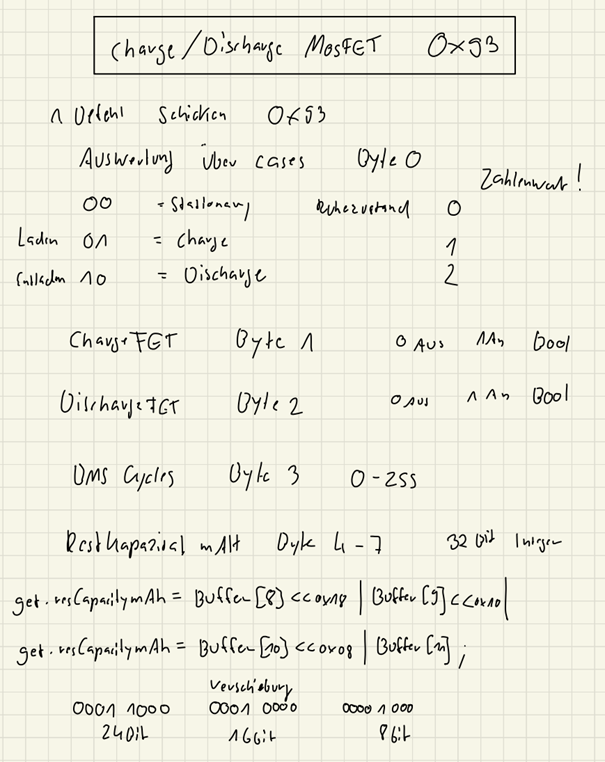 Charge/Discharge MosFET 0x93
1 Befehl Schicken 0x93
Auswertung über cases Byte 0
Zahlenwert!
00 = Stationary Ruhezustand 0
Laden 01 = Charge 1
Entladen 10 = Discharge 2
ChargeFET Byte 1 0 Aus 1 An Bool
DischargeFET Byte 2 0 Aus 1 An Bool
BMS Cycles Byte 3 0-255
RestKapazität mAH Byte 4-7 32 Bit Integer
get.resCapacitymAh = Buffer[8]<<0x18 | Buffer[9]<<0x10|
get.resCapacitymAh = Buffer[10]<<0x08 | Buffer[11];
Verschiebung
0001 1000 0001 0000 0000 1000
24Bit 16Bit 8Bit